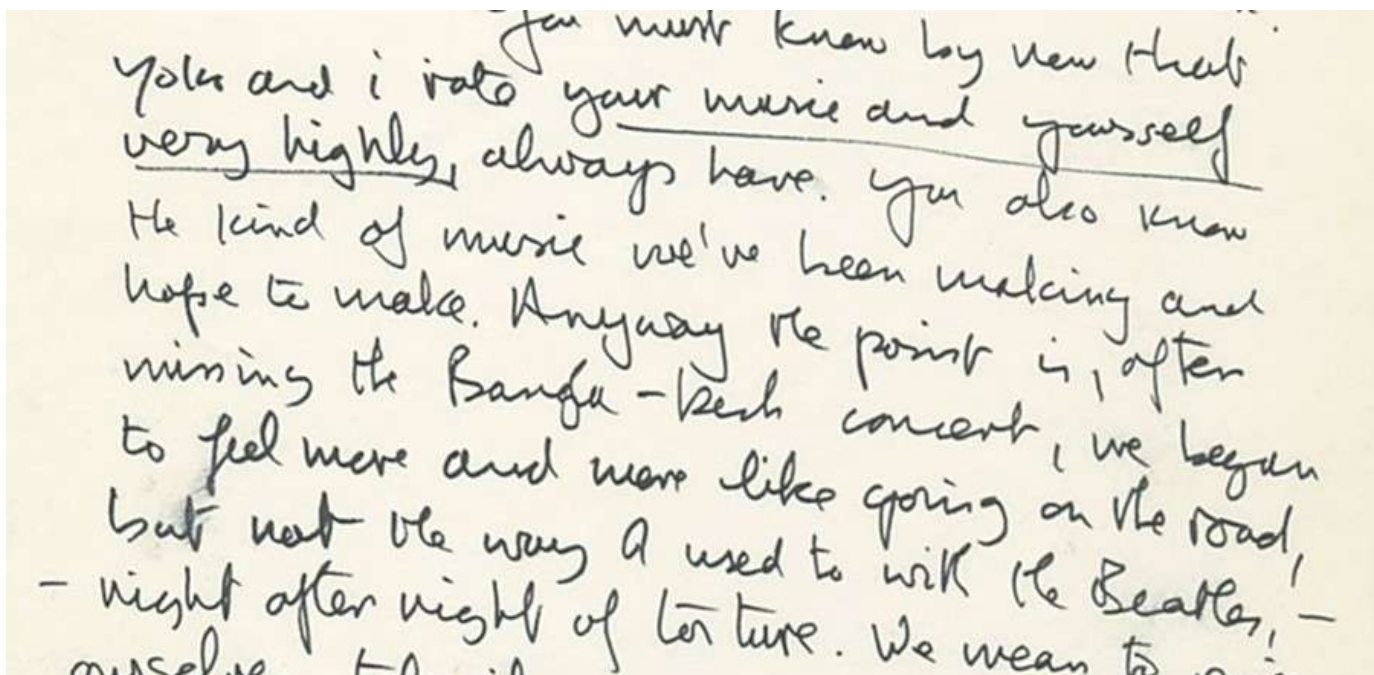 You must know by now that
Yoko and i rate your music and yourself
very highly, always have. You also know
the kind of music we've been making and
hope to make. Anyway the point is, after
missing the Bangla-Desh concert, we began
to feel more and more like going on the road,
but not the way I used to with the Beatles, -
- night after night of torture. We mean to
ourselves